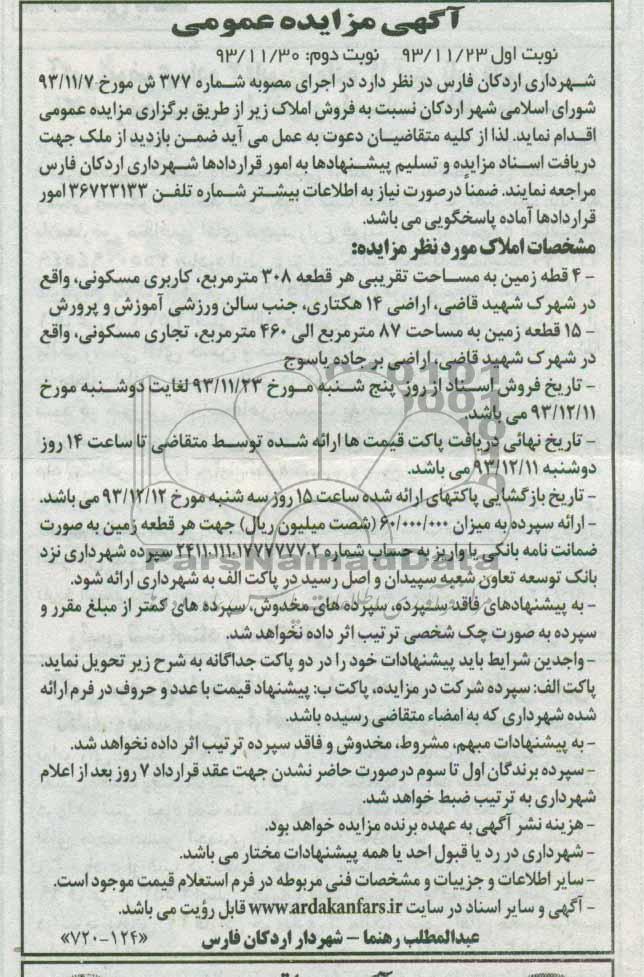 آگهی مزایده عمومی
نوبت اول ۹۳/۱۱/۲۳ نوبت دوم: ۹۳/۱۱/۳۰
شهرداری اردکان فارس در نظر دارد در اجرای مصوبه شماره ۳۷۷ ش مورخ ۹۳/۱۱/۷
شورای اسلامی شهر اردکان نسبت به فروش املاک زیر از طریق برگزاری مزایده عمومی
اقدام نماید. لذا از کلیه متقاضیان دعوت به عمل می آید ضمن بازدید از ملک جهت
دریافت اسناد مزایده و تسلیم پیشنهادها به امور قراردادها شهرداری اردکان فارس
مراجعه نمایند. ضمناً درصورت نیاز به اطلاعات بیشتر شماره تلفن ۳۶۷۲۳۱۳۳ امور
قراردادها آماده پاسخگویی می باشد.
مشخصات املاک مورد نظر مزایده:
- ۴ قطه زمین به مساحت تقریبی هر قطعه ۳۰۸ مترمربع، کاربری مسکونی، واقع
در شهرک شهید قاضی، اراضی ۱۴ هکتاری، جنب سالن ورزشی آموزش و پرورش
- ۱۵ قطعه زمین به مساحت ۸۷ مترمربع الی ۴۶۰ مترمربع، تجاری مسکونی، واقع
در شهرک شهید قاضی، اراضی بر جاده یاسوج
- تاریخ فروش اسناد از روز پنج شنبه مورخ ۹۳/۱۱/۲۳ لغایت دوشنبه مورخ
۹۳/۱۲/۱۱ می باشد.
- تاریخ نهائی دریافت پاکت قیمت ها ارائه شده توسط متقاضی تا ساعت ۱۴ روز
دوشنبه ۹۳/۱۲/۱۱ می باشد.
- تاریخ بازگشایی پاکتهای ارائه شده ساعت ۱۵ روز سه شنبه مورخ ۹۳/۱۲/۱۲ می باشد.
- ارائه سپرده به میزان ۶۰/۰۰۰/۰۰۰ (شصت میلیون ریال) جهت هر قطعه زمین به صورت
ضمانت نامه بانکی یا واریز به حساب شماره ۲۴۱۱.۱۱۱.۱۷۷۷۷۷۷.۲ سپرده شهرداری نزد
بانک توسعه تعاون شعبه سپیدان و اصل رسید در پاکت الف به شهرداری ارائه شود.
- به پیشنهادهای فاقد سپرده، سپرده های مخدوش، سپرده های کمتر از مبلغ مقرر و
سپرده به صورت چک شخصی ترتیب اثر داده نخواهد شد.
- واجدین شرایط باید پیشنهادات خود را در دو پاکت جداگانه به شرح زیر تحویل نماید.
پاکت الف: سپرده شرکت در مزایده، پاکت ب: پیشنهاد قیمت با عدد و حروف در فرم ارائه
شده شهرداری که به امضاء متقاضی رسیده باشد.
- به پیشنهادات مبهم، مشروط، مخدوش و فاقد سپرده ترتیب اثر داده نخواهد شد.
- سپرده برندگان اول تا سوم درصورت حاضر نشدن جهت عقد قرارداد ۷ روز بعد از اعلام
شهرداری به ترتیب ضبط خواهد شد.
- هزینه نشر آگهی به عهده برنده مزایده خواهد بود.
- شهرداری در رد یا قبول احد یا همه پیشنهادات مختار می باشد.
- سایر اطلاعات و جزییات و مشخصات فنی مربوطه در فرم استعلام قیمت موجود است.
- آگهی و سایر اسناد در سایت www.ardakanfars.ir قابل رؤیت می باشد.
عبدالمطلب رهنما - شهردار اردکان فارس «۷۲۰-۱۲۴»
ParsNamadData